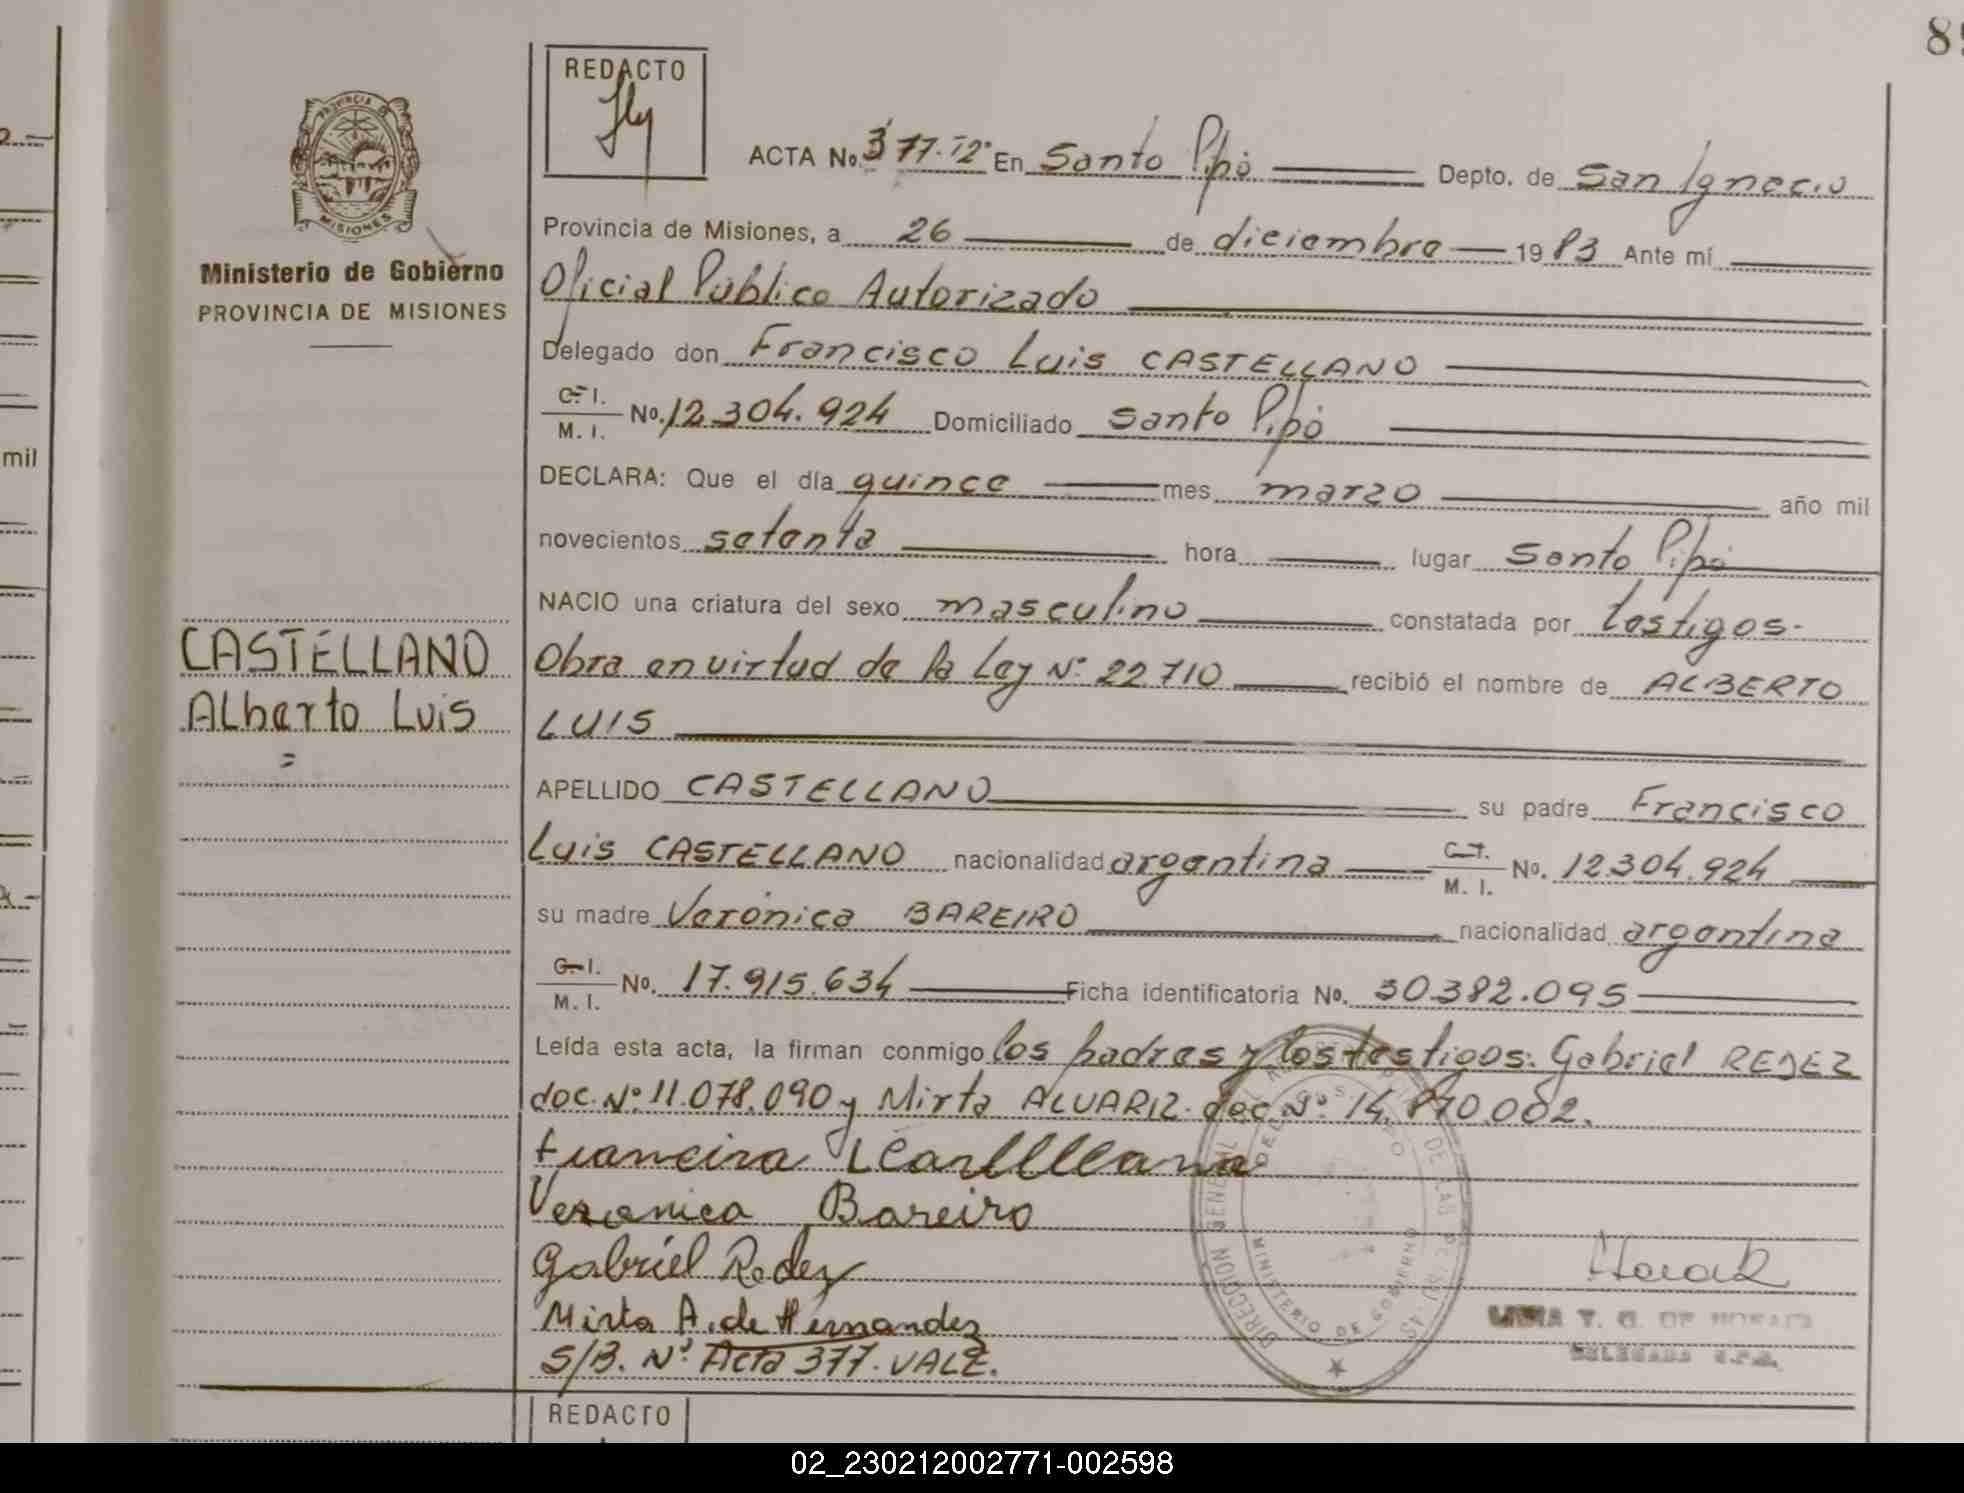 89
REDACTO
ACTA No. 377. Tº 2º En Santo Pipó Depto. de San Ignacio
PROVINCIA DE
MISIONES
Provincia de Misiones, a 26 de diciembre 1983 Ante mí
Ministerio de Gobierno
PROVINCIA DE MISIONES
Oficial Público Autorizado
Delegado don Francisco Luis CASTELLANO
C. I.
M. I.
No. 12.304.924 Domiciliado Santo Pipó
DECLARA: Que el día quince mes marzo año mil
mil
novecientos setenta hora lugar Santo Pipó
NACIO una criatura del sexo masculino constatada por testigos-
CASTELLANO
Alberto Luis
=
Obra en virtud de la Ley Nº 22.710 recibió el nombre de ALBERTO
LUIS
APELLIDO CASTELLANO su padre Francisco
Luis CASTELLANO nacionalidad argentina C. I.
M. I.
No. 12.304.924
su madre Verónica BAREIRO nacionalidad argentina
C. I.
M. I.
No. 17.915.634 Ficha identificatoria No. 30.382.095
Leída esta acta, la firman conmigo los padres y los testigos: Gabriel REDEZ
doc. Nº 11.078.090 y Mirta ALVARIZ. doc Nº 14.810.002.
Veronica Bareiro
Gabriel Redez
Mirta A. de Hernandez
S/B. Nº Acta 377. VALE.
DIRECCION GENERAL DE LAS PERSONAS
MINISTERIO DE GOBIERNO
REDACTO
02_230212002771-002598